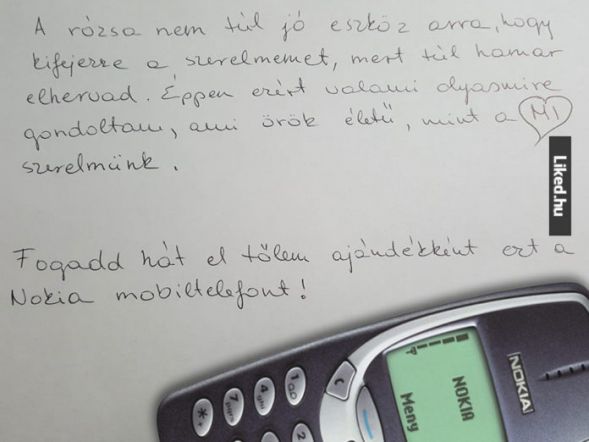 A rózsa nem túl jó eszköz arra, hogy
kifejezze a szerelmemet, mert túl hamar
elhervad. Éppen ezért valami olyasmire
gondoltam, ami örök életű, mint a MI
szerelmünk.
Liked.hu
Fogadd hát el tőlem ajándékként ezt a
Nokia mobiltelefont!
NOKIA
NOKIA
Meny
1
4 ghi
7 pqrs
*+
2